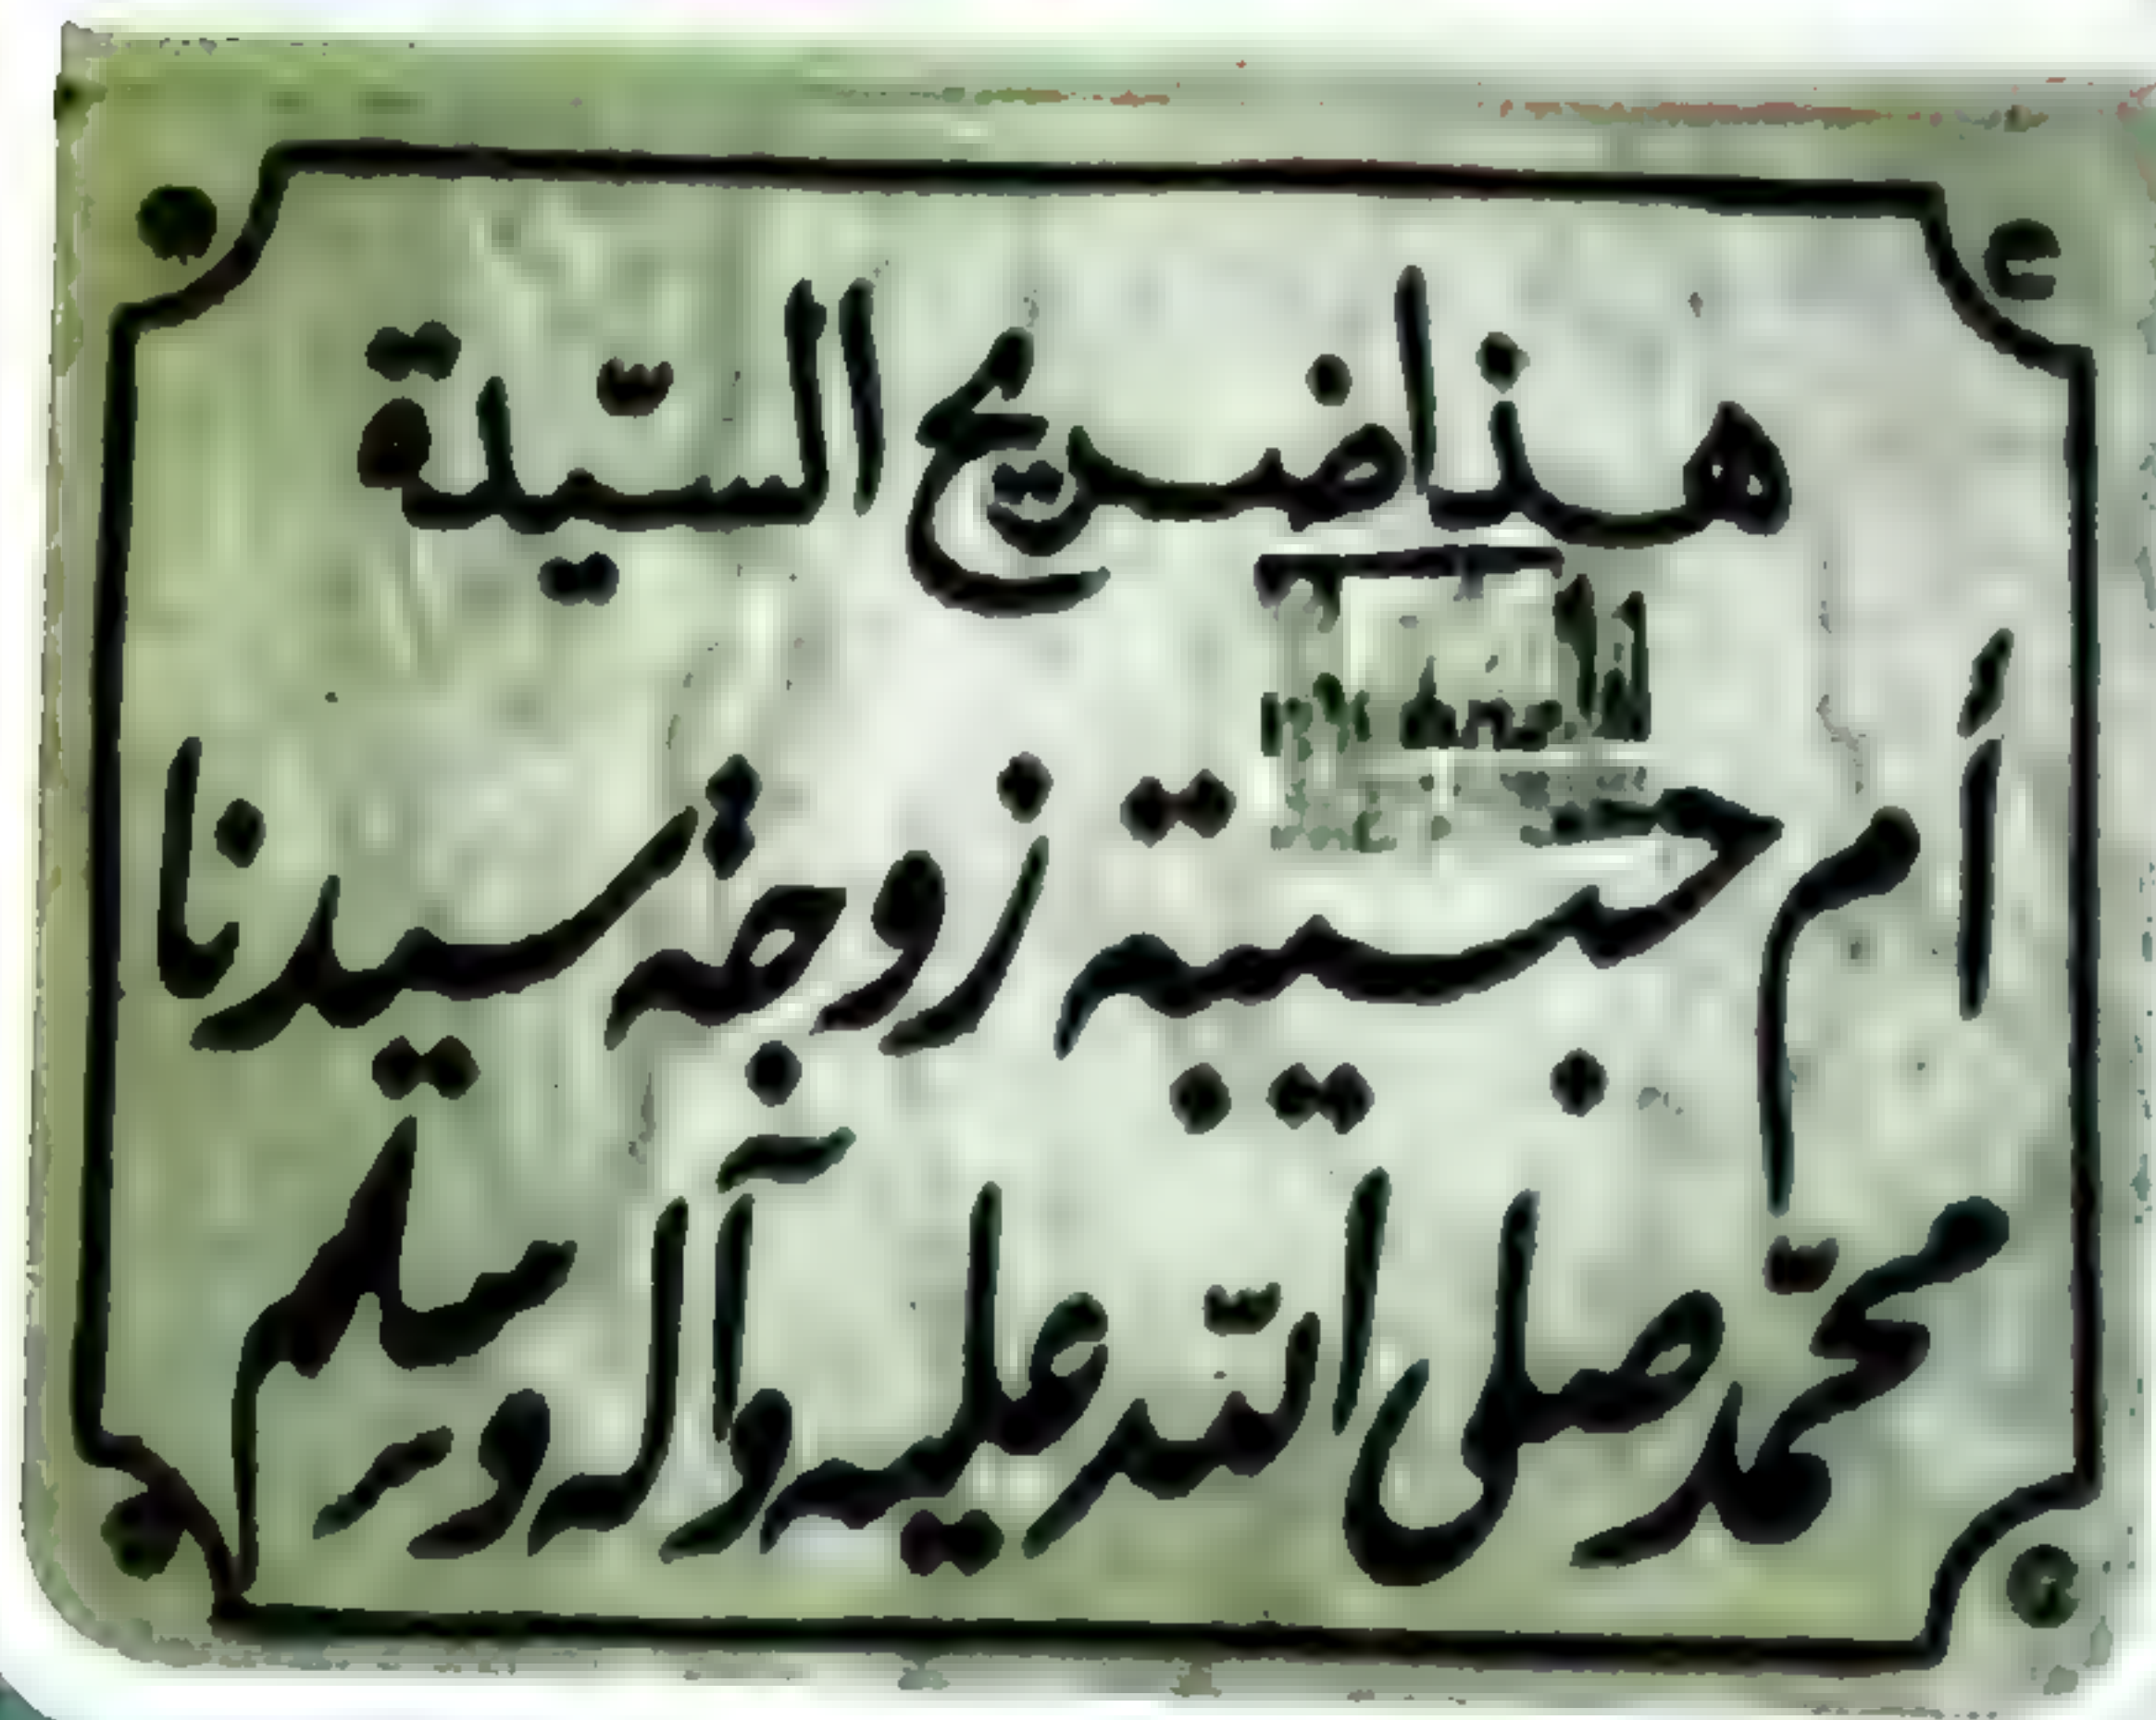 هذا ضريح السيّدة
أم حبيبة زوجة سيدنا
محمّد صلى اللّه عليه وآله وسلم